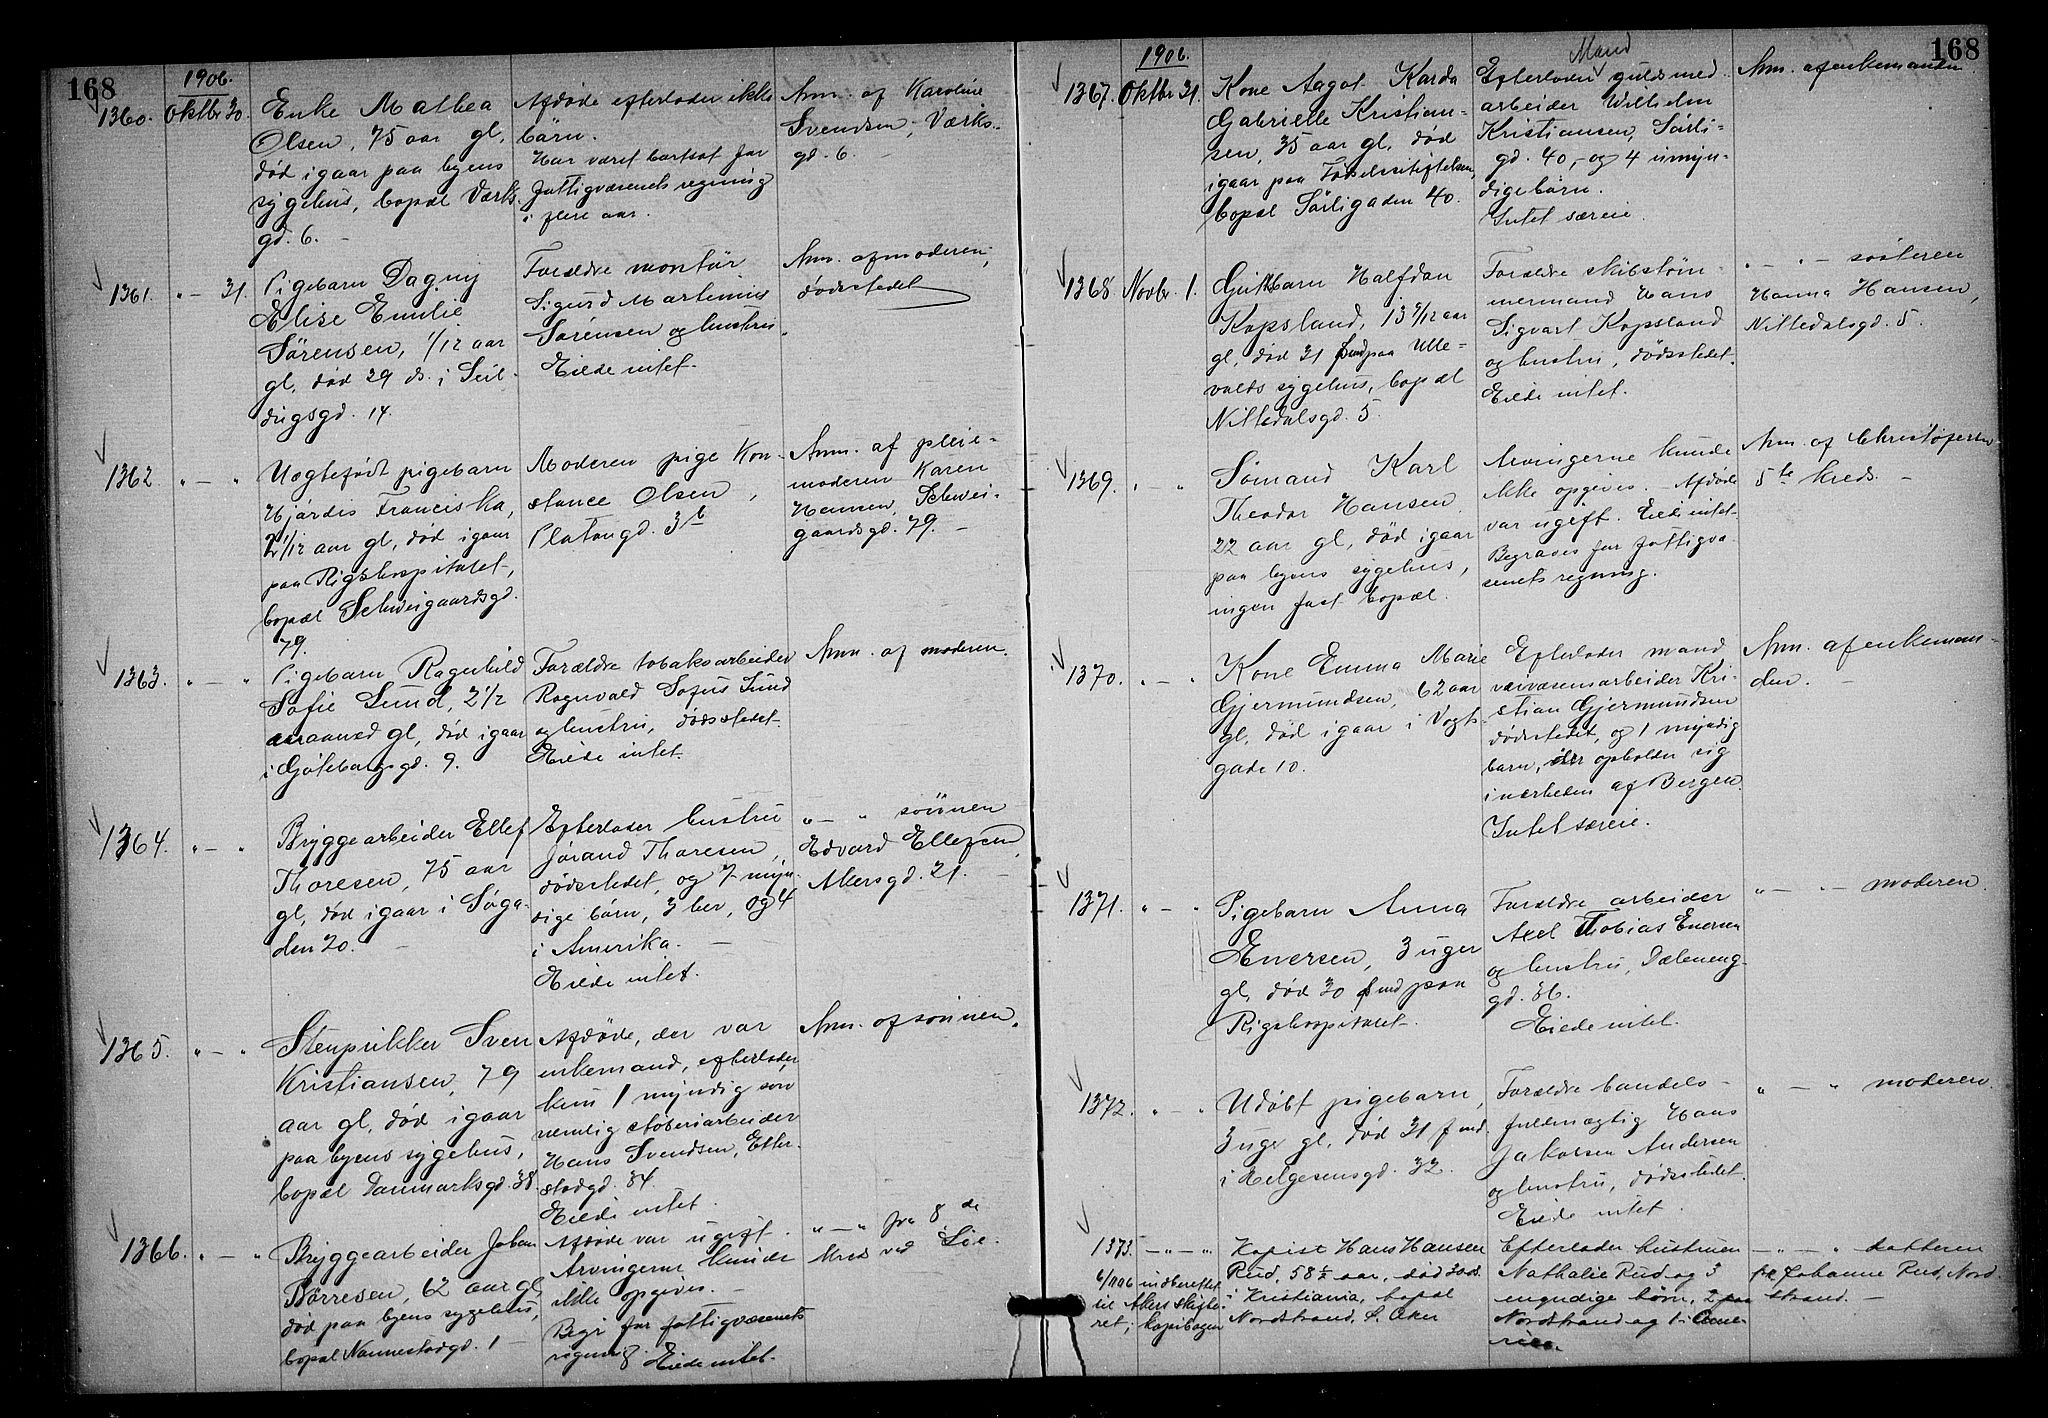 168
1906.
1360. Oktbr 30.
Enke Mathea
Olsen, 75 aar gl,
död igaar paa byens
sygehus, bopæl Værks
gd. 6. -
Afdöde efterlader ikke
börn.
Har været bortsat for
fattigvæsenets regning
i flere aar.
Anm. af Karoline
Svendsen, Værks-
gd. 6. -
1361. " - 31.
Pigebarn Dagny
Elise Emilie
Sörensen, 1/12 aar
gl, död 29 ds. i Seil-
dugsgd. 14.
Forældre montör
Sigurd Martinius
Sörensen og hustru.
Eiede intet.
Anm. af moderen,
dödsstedet
1362. " - "
Uægtefödt pigebarn
Hjördis Franciska,
2 1/12 aar gl, död igaar
paa Rigshospitalet,
bopæl Schweigaardsgd.
79.
Moderen pige Kon-
stance Olsen,
Platougd. 3b
Anm. af pleie-
moderen Karen
Hansen, Schwei-
gaardsgd. 79. -
1363. " - "
Pigebarn Ragnhild
Sofie Lund, 2 1/2
gl, död igaar
i Göteborgsgd. 9.
Forældre tobaksarbeider
Ragnvald Sofus Lund
og hustru, dödsstedet.
Eiede intet.
Anm. af moderen.
1364. " - "
Bryggearbeider Ellef
Thoresen, 75 aar
gl, död igaar i Söga-
den 20. -
Efterlader hustru
Jörand Thoresen,
dödsstedet, og 7 myn-
dige börn, 3 her, og 4
i Amerika. -
Eiede intet.
" - " sönnen
Edvard Ellefsen,
Akersgd. 21. -
1365. " - "
Stenpikker Sven
Kristiansen, 79
aar gl, död igaar
paa byens sygehus,
bopæl Danmarksgd. 38.
Afdöde, der var
enkemand, efterlader
kun 1 myndig sön
nemlig stöberiarbeider
Hans Svendsen, Etter-
stadgd. 34.
Eiede intet.
Anm. af sönnen.
1366. " - "
Bryggearbeider Johan
Börresen, 62 aar gl,
död paa byens sygehus,
bopæl Nannestadgd. 1 -
Afdöde var ugift.
Arvingerne kunde
ikke opgives. -
Begr for fattigvæsenets
regning. Eiede intet.
" - " fra 8de
kreds ved Lie.
168
1906.
1367. Oktbr 31.
Kone Aagot Karda
Gabrielle Kristian-
sen, 35 aar gl, död
igaar paa Födselsstiftelsen,
bopæl Sörligaden 40.
Mand
Efterlader guldsmed
arbeider Wilhelm
Kristiansen, Sörli-
gd. 40, og 4 umyn-
dige börn.
Intet særeie.
Anm. af enkemanden
1368 Novbr. 1.
Gutbarn Halfdan
Kopsland, 13 9/12 aar
gl, död 31 f md paa Ulle-
volds sygehus, bopæl
Nittedalsgd. 5.
Forældre skibstöm-
mermand Hans
Sigvart Kopsland
og hustru, dödsstedet.
Eiede intet.
" - " - söster­en
Hanna Hansen,
Nittedalsgd. 5.
1369. " - "
Sömand Karl
Theodor Hansen
22 aar gl, död igaar
paa byens sygehus,
ingen fast bopæl.
Arvingerne kunde
ikke opgives. Afdöde
var ugift. Eiede intet.
Begraves for fattigvæ
senets regning.
Anm. af Christofersen
5te kreds. -
1370. " - "
Kone Emma Marie
Gjermundsen, 62 aar
gl, död igaar i Vogts-
gade 10.
Efterlader mand
veivæsenarbeider Kri-
stian Gjermundsen
dödsstedet, og 1 myndig
barn, der opholder sig
i nærheden af Bergen.
Intet særeie.
Anm. af enkeman-
den. -
1371. " - "
Pigebarn Anna
Enersen, 3 uger
gl, död 30 f md paa
Rigshospitalet.
Forældre arbeider
Axel Tobias Enersen
og hustru, Dæleneng-
gd. 36.
Eiede intet.
" - " - moderen.
1372. " - "
Udöbt pigebarn,
3 uger gl, död 31 f md.
i Helgesensgd. 32.
Forældre handels-
fuldmægtig Hans
Jakobsen Andersen
og hustru, dödsstedet.
Eiede intet.
" - " moderen.
1373. - " - "
6/11 06 indberettet
til Akers skifte-
ret; kopibogen
Kopist Hans Hansen
Rud, 58 1/2 aar, död 30 ds.
i Kristiania, bopæl
Nordstrand, Ö. Aker
Efterlader hustruen
Nathalie Rud og 3
myndige börn, 2 paa
Nordstrand og 1 i Ame-
rica.
- " - " datteren
frk Johanne Rud, Nord-
strand. -